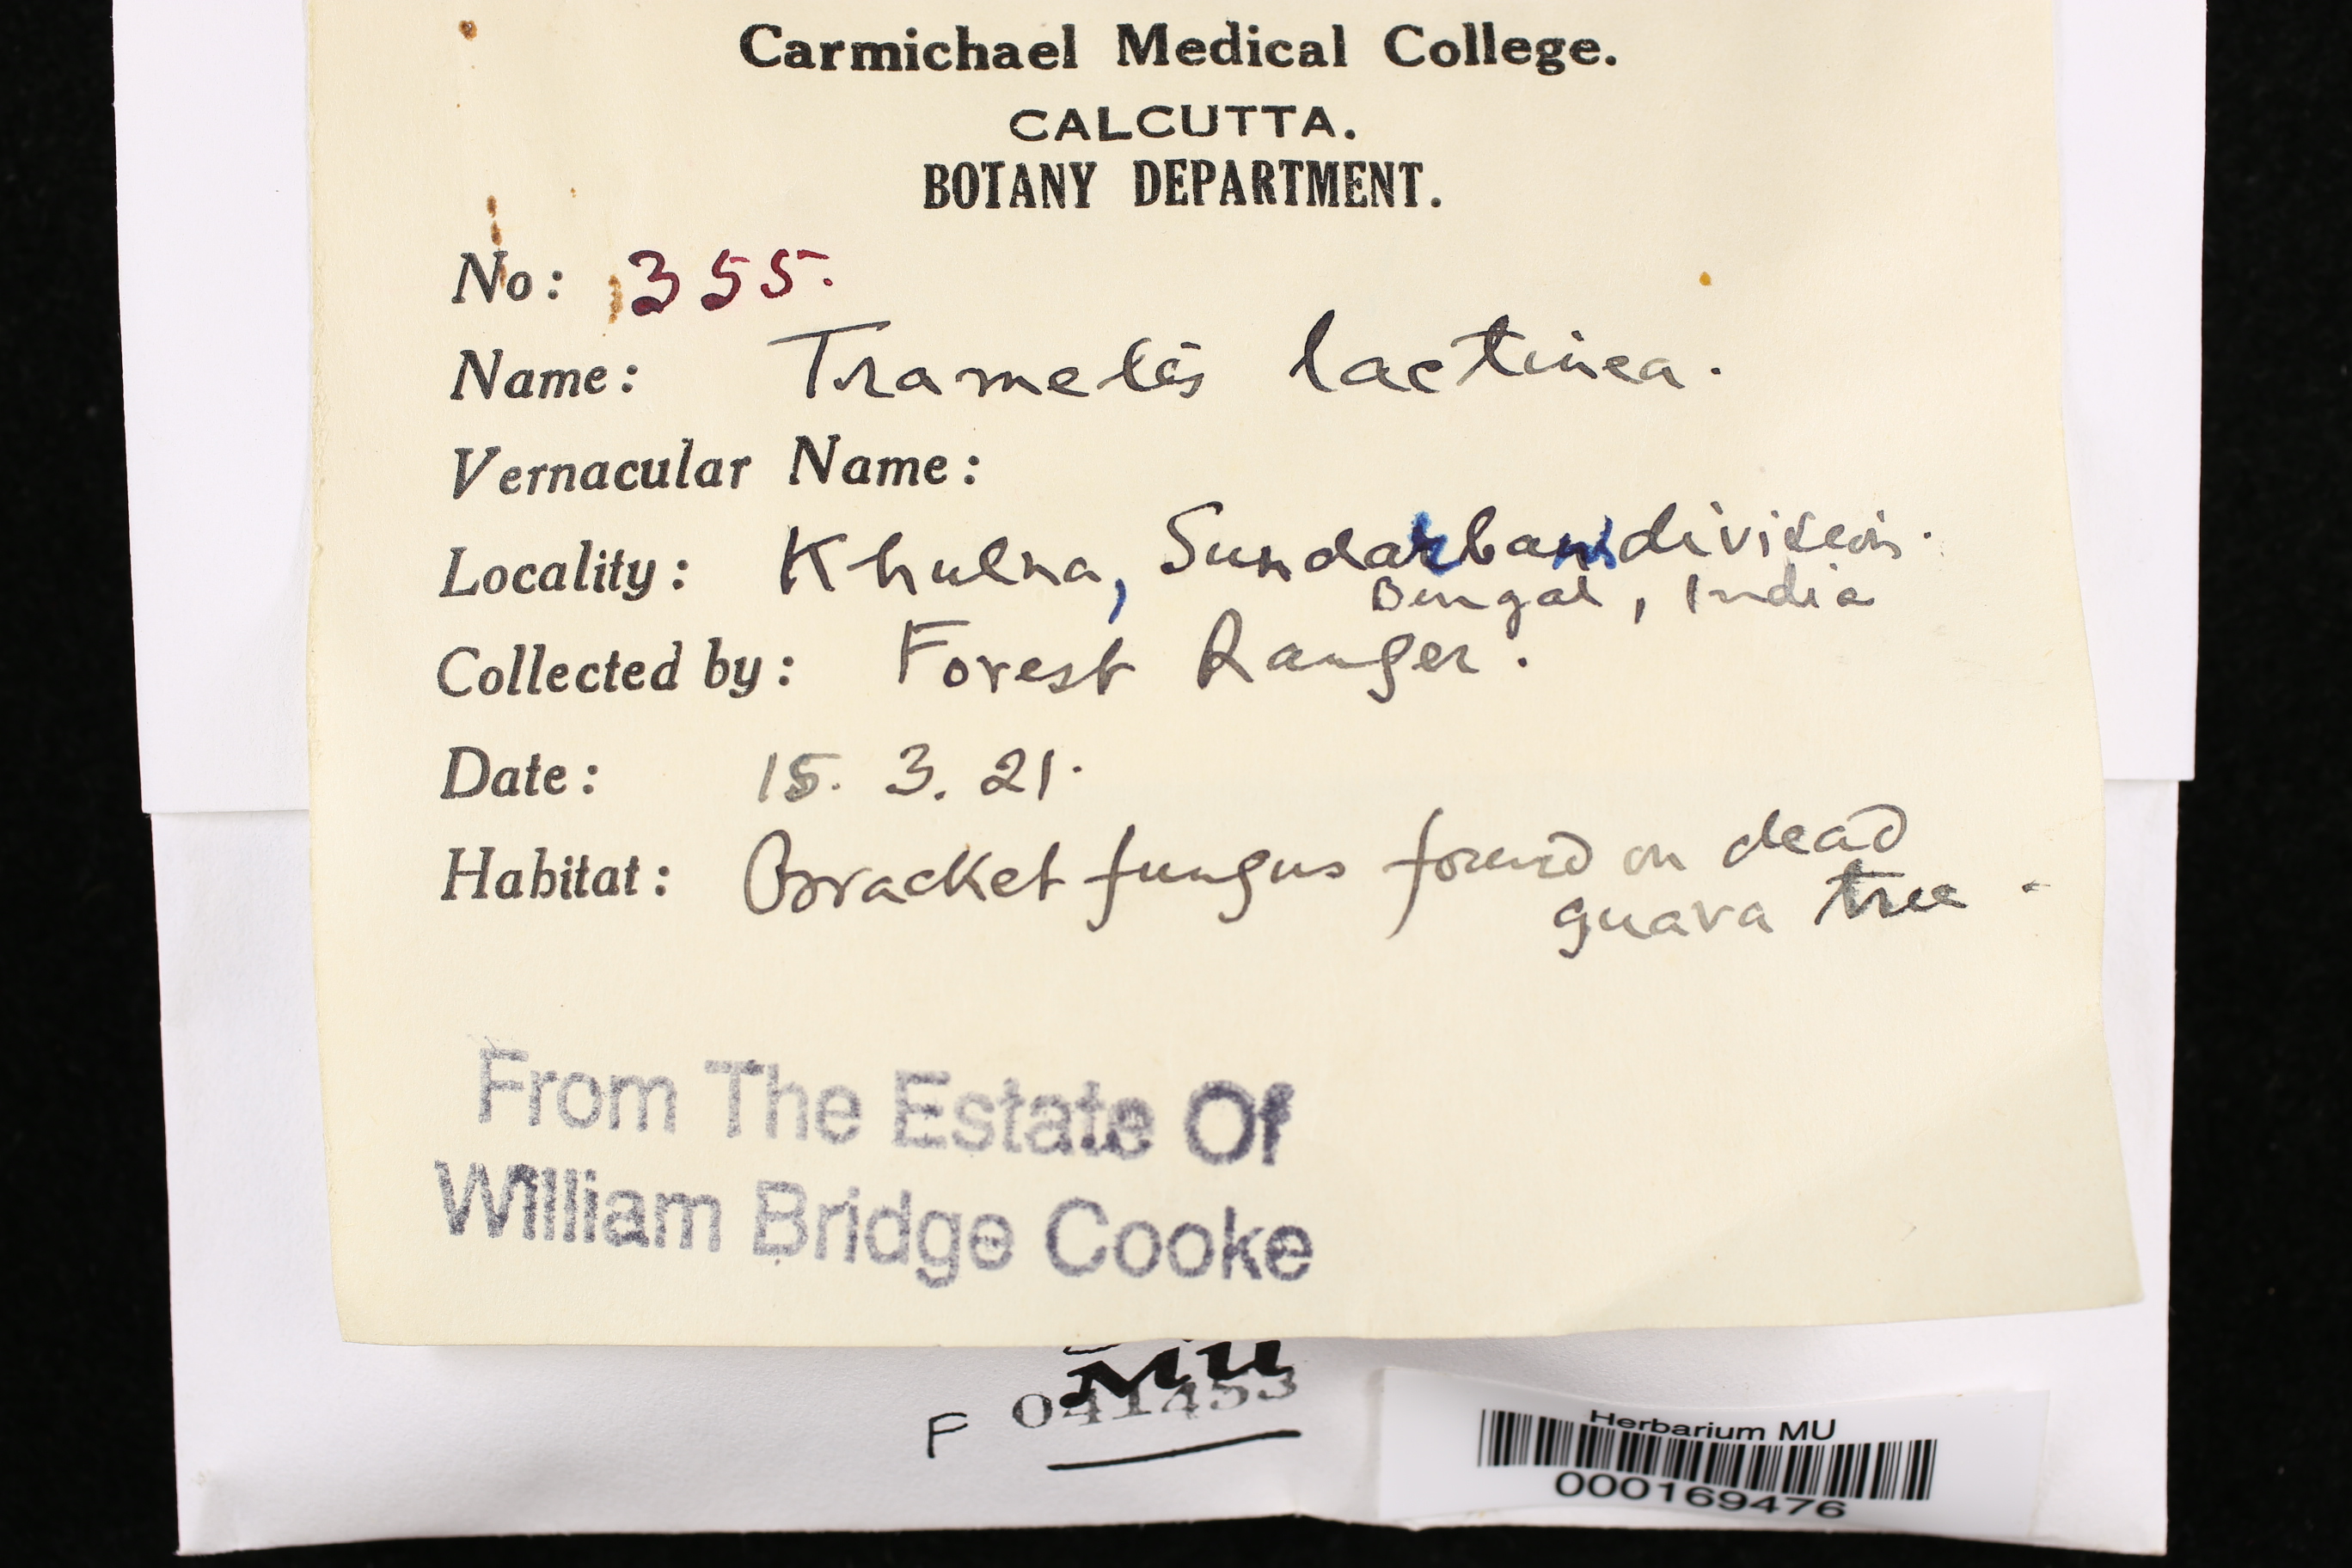 Carmichael Medical College.
CALCUTTA.
BOTANY DEPARTMENT.
No: 355.
Name: Trametes lactinea.
Vernacular Name:
Locality: Khulna, Sundarban division.
Bengal, India
Collected by: Forest Ranger.
Date: 15. 3. 21.
Habitat: Bracket fungus found on dead
guava tree -
From The Estate Of
William Bridge Cooke
MU
F 041453
Herbarium MU
000169476